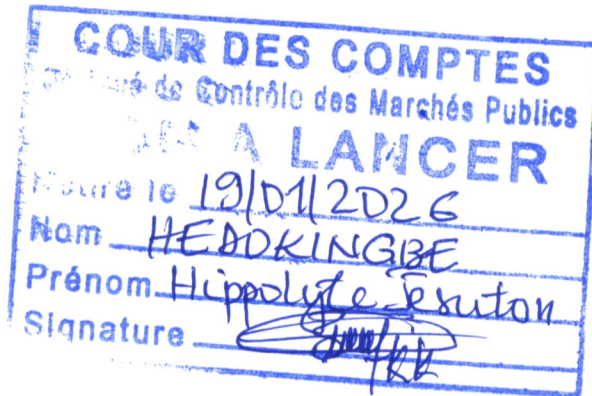 COUR DES COMPTES
de Contrôle des Marchés Publics
A LANCER
le 19/01/2026
Nom HEDOKINGBE
Prénom Hippolyte Jésuton
Signature